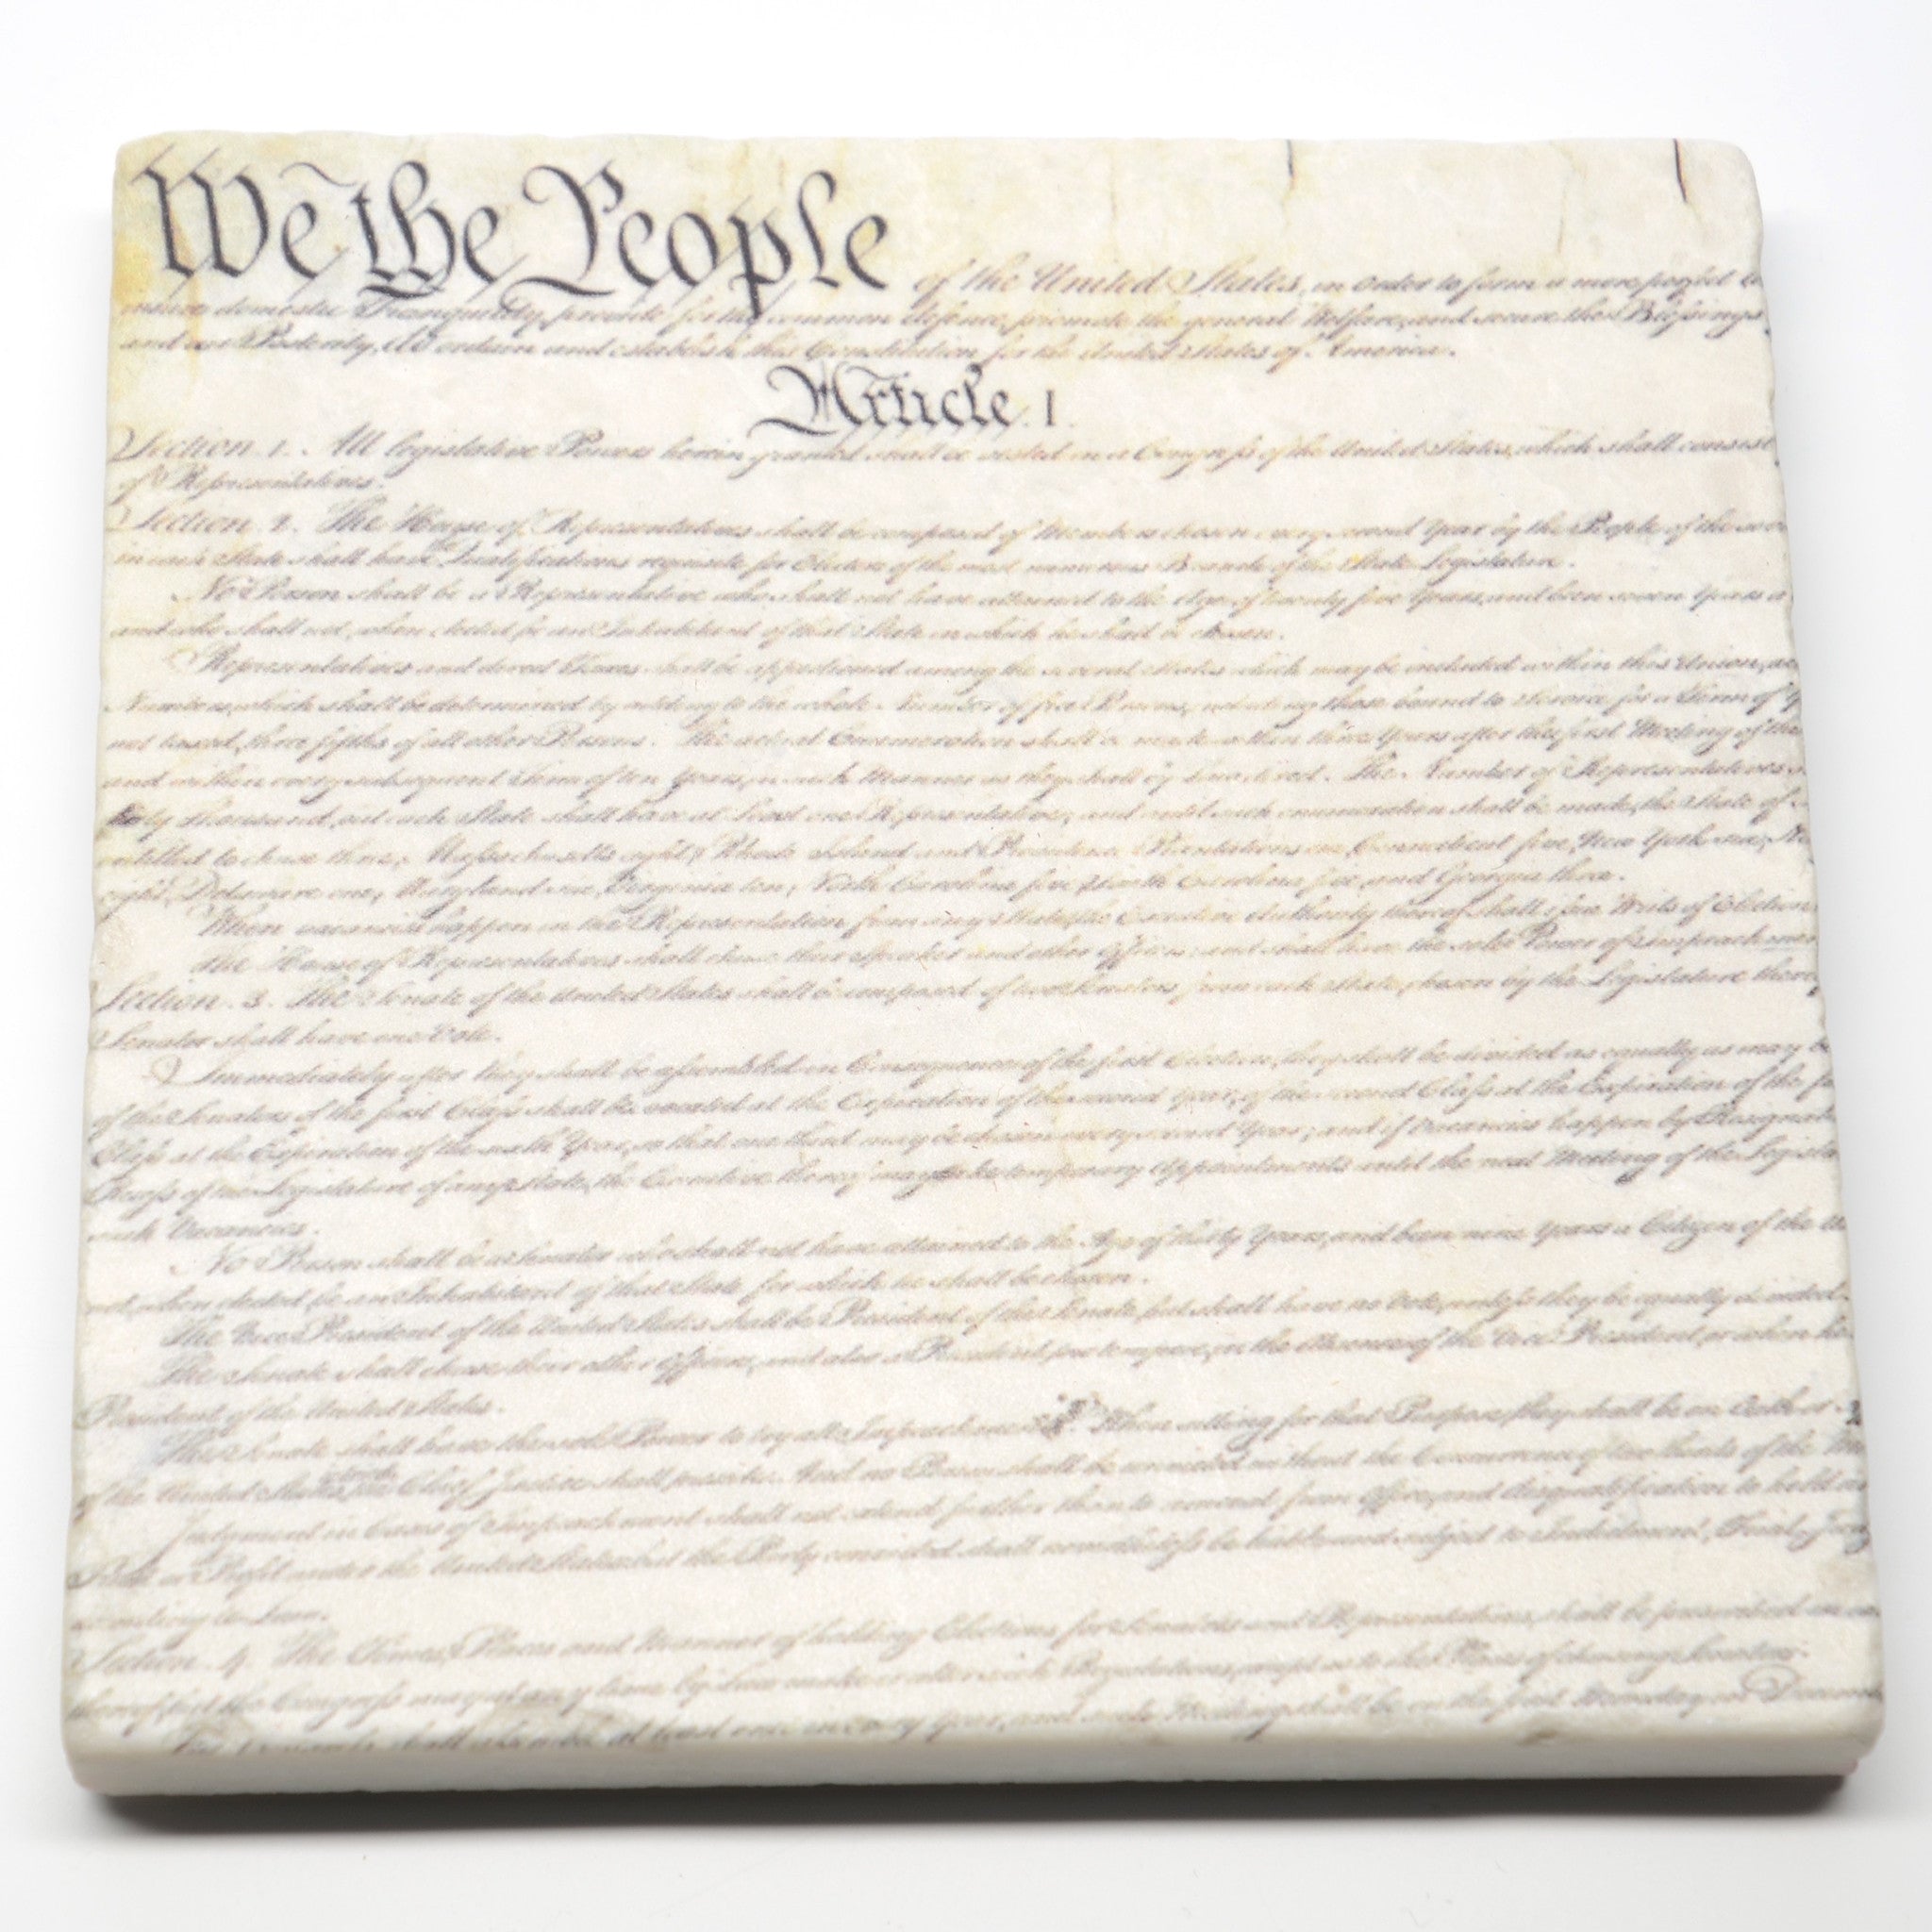 We the People of the United States, in Order to form a more perfect
insure domestic Tranquility, provide for the common defence, promote the general Welfare, and secure the Blessings
and our Posterity, do ordain and establish this Constitution for the United States of America.
Article. I.
Section. 1. All legislative Powers herein granted shall be vested in a Congress of the United States, which shall consist
of Representatives.
Section. 2. The House of Representatives shall be composed of Members chosen every second Year by the People of the
in each State shall have the Qualifications requisite for Electors of the most numerous Branch of the State Legislature.
No Person shall be a Representative who shall not have attained to the Age of twenty five Years, and been seven Years a
and who shall not, when elected, be an Inhabitant of that State in which he shall be chosen.
Representatives and direct Taxes shall be apportioned among the several States which may be included within this Union,
Numbers, which shall be determined by adding to the whole Number of free Persons, including those bound to Service for a Term of
not taxed, three fifths of all other Persons. The actual Enumeration shall be made within three Years after the first Meeting of the
and within every subsequent Term of ten Years, in such Manner as they shall by Law direct. The Number of Representatives
thirty Thousand, but each State shall have at Least one Representative; and until such enumeration shall be made, the State of
entitled to chuse three, Massachusetts eight, Rhode Island and Providence Plantations one, Connecticut five, New York six,
eight, Delaware one, Maryland six, Virginia ten, North Carolina five, South Carolina five, and Georgia three.
When vacancies happen in the Representation from any State, the Executive Authority thereof shall issue Writs of Election
The House of Representatives shall chuse their Speaker and other Officers; and shall have the sole Power of Impeachment
Section. 3. The Senate of the United States shall be composed of two Senators from each State, chosen by the Legislature
Senator shall have one Vote.
Immediately after they shall be assembled in Consequence of the first Election, they shall be divided as equally as may
of the Senators of the first Class shall be vacated at the Expiration of the second Year, of the second Class at the Expiration of the
Class at the Expiration of the sixth Year, so that one third may be chosen every second Year; and if Vacancies happen by
Recess of the Legislature of any State, the Executive thereof may make temporary Appointments until the next Meeting of the
such Vacancies.
No Person shall be a Senator who shall not have attained to the Age of thirty Years, and been nine Years a Citizen of the
not, when elected, be an Inhabitant of that State for which he shall be chosen.
The Vice President of the United States shall be President of the Senate, but shall have no Vote, unless they be equally divided.
The Senate shall chuse their other Officers, and also a President pro tempore, in the Absence of the Vice President, or when he
President of the United States.
The Senate shall have the sole Power to try all Impeachments. When sitting for that Purpose, they shall be on Oath or
of the United States is tried, the Chief Justice shall preside: And no Person shall be convicted without the Concurrence of two thirds of the
Judgment in Cases of Impeachment shall not extend further than to removal from Office, and disqualification to hold
Trust or Profit under the United States: but the Party convicted shall nevertheless be liable and subject to Indictment, Trial,
according to Law.
Section. 4. The Times, Places and Manner of holding Elections for Senators and Representatives, shall be prescribed in
thereof; but the Congress may at any time by Law make or alter such Regulations, except as to the Places of chusing Senators.
The Congress shall assemble at least once in every Year, and such Meeting shall be on the first Monday in